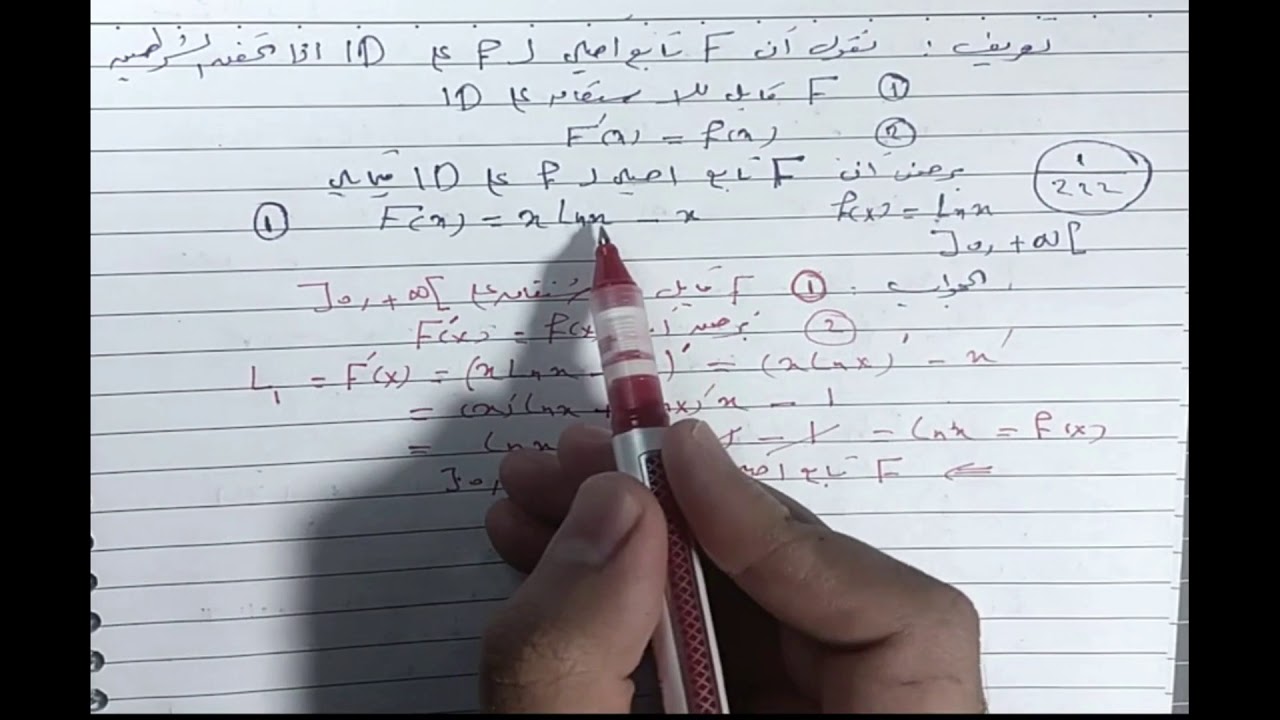 تعريف : نقول أن F تابع اصلي لـ f على ID اذا تحقق الشرطين
① F قابل للاشتقاق على ID
② F'(x) = f(x)
برهن أن F تابع اصلي لـ f على ID فيما يلي
1/222
① F(x) = x lnx - x f(x) = lnx
]0, +∞[
الجواب : ① F قابل على ]0, +∞[
② F'(x) = f(x)
L₁ = F'(x) = (x lnx - )' = (x lnx)' - x'
= (x)' lnx + x)' x - 1
= lnx - 1 = lnx = f(x)
⇐ F تابع ]0,